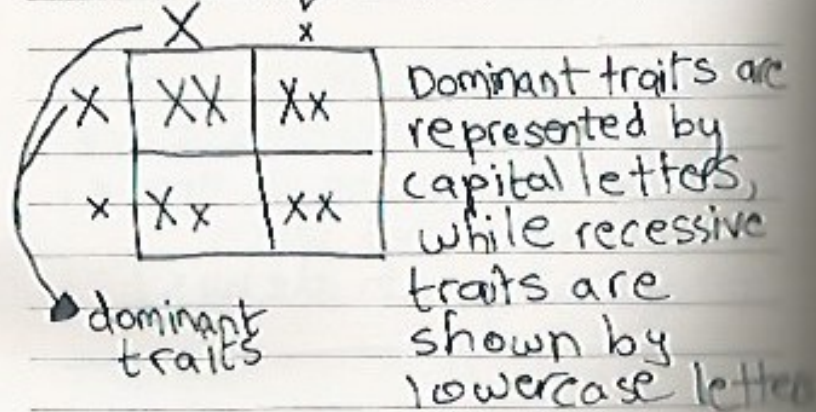 X x
X XX Xx
x Xx xx
dominant
traits
Dominant traits are
represented by
capital letters,
while recessive
traits are
shown by
lowercase